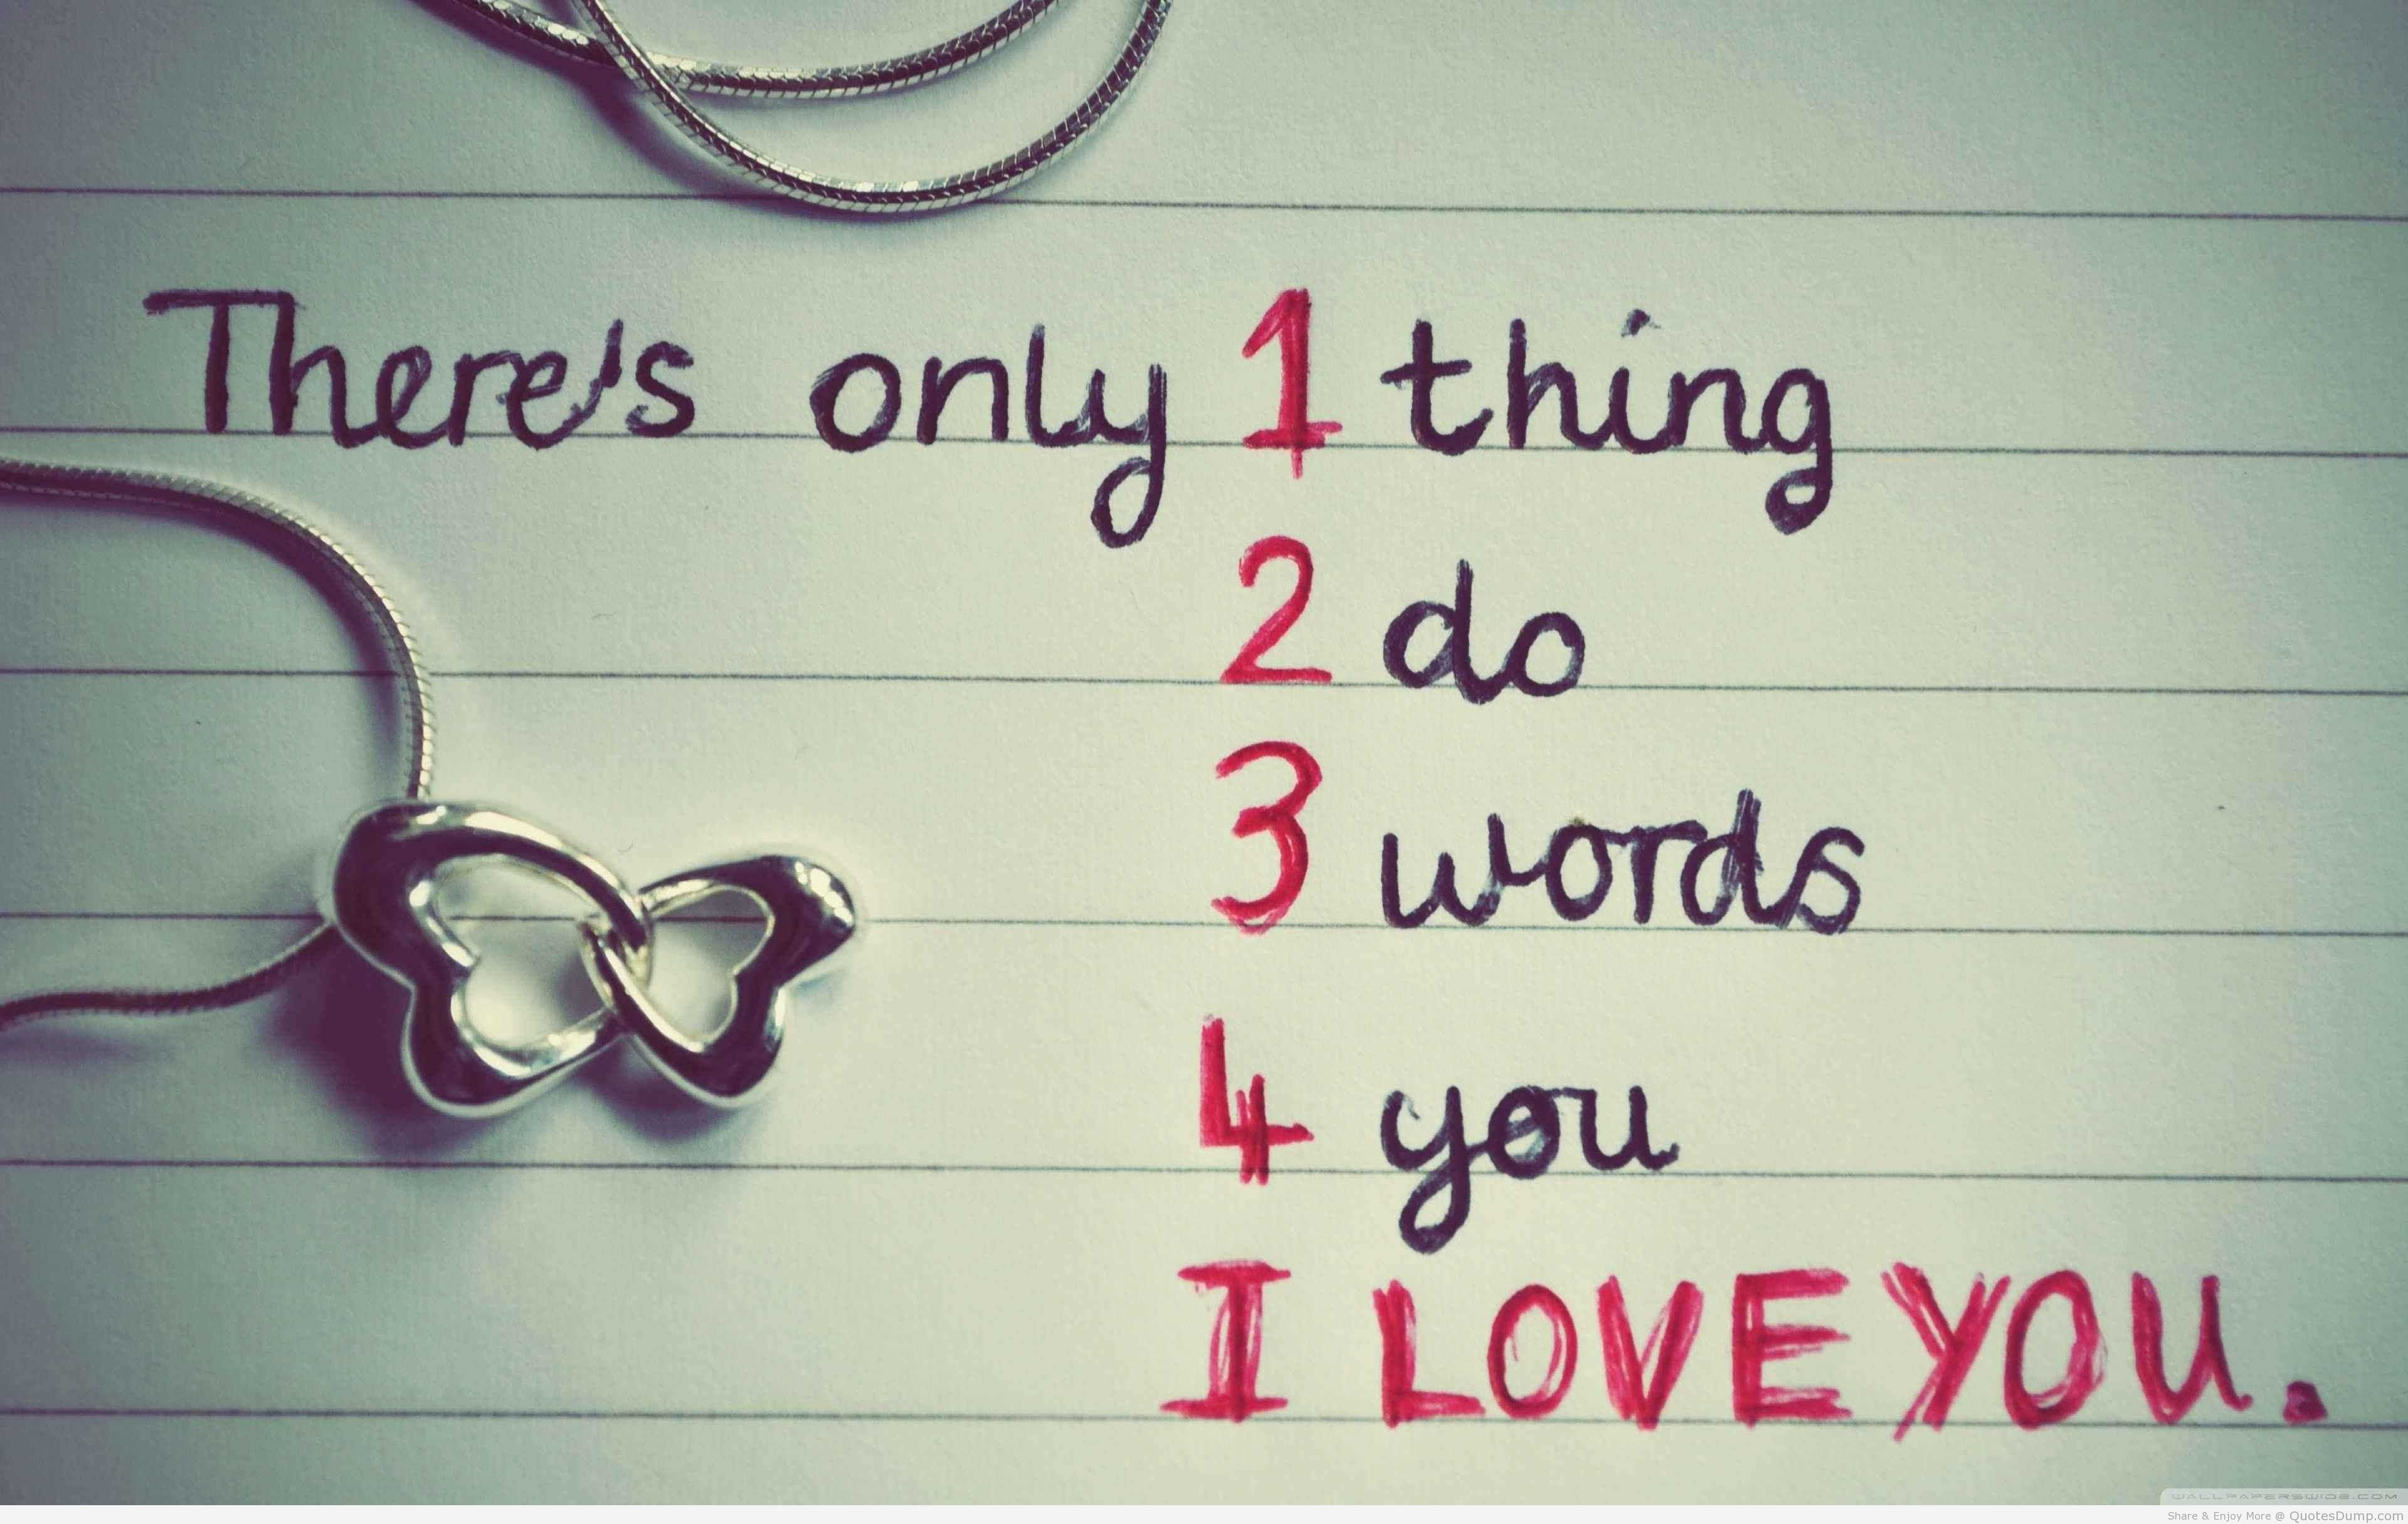 There's only 1 thing
2 do
3 words
4 you
I LOVE YOU.
WALLPAPERSWIDE.COM
Share & Enjoy More @ QuotesDump.com